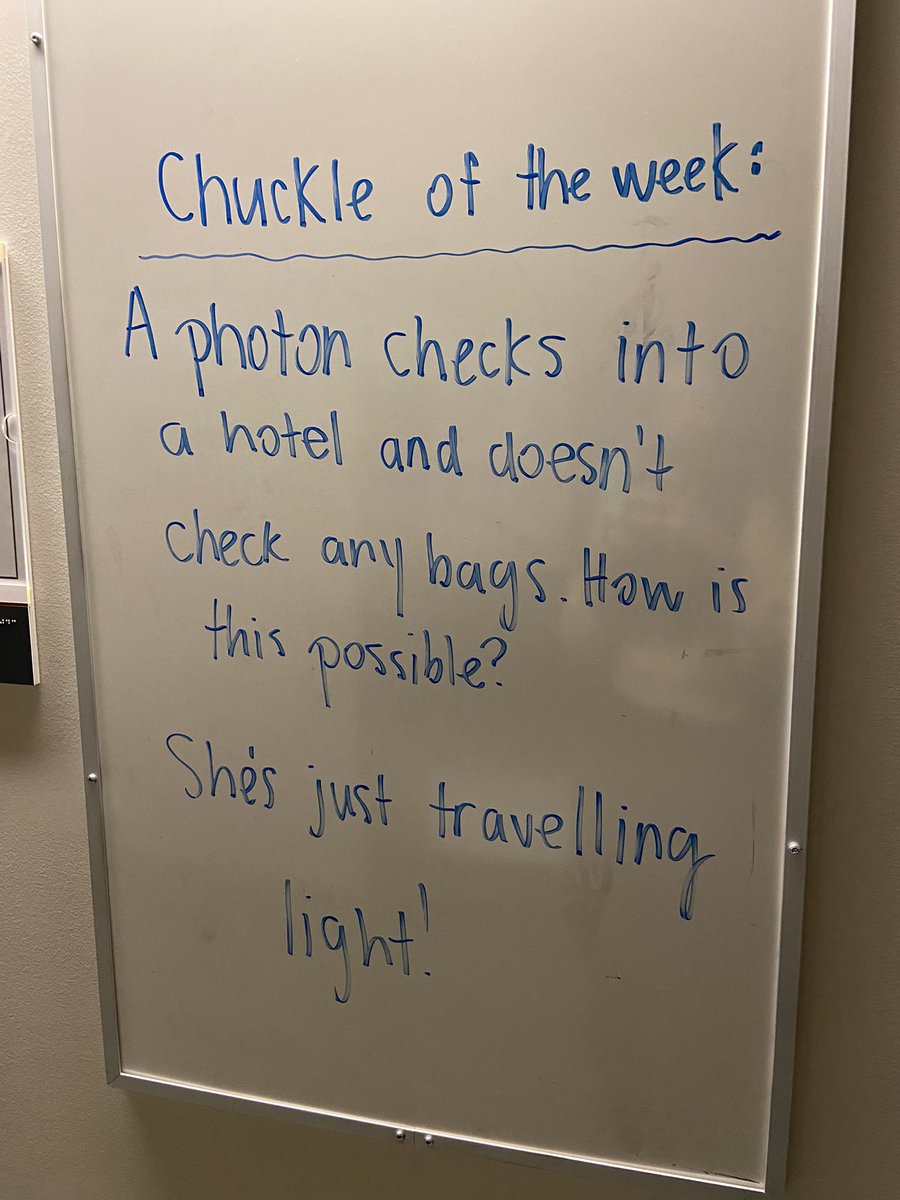 Chuckle of the week:
A photon checks into
a hotel and doesn't
check any bags. How is
this possible?
She's just travelling
light!